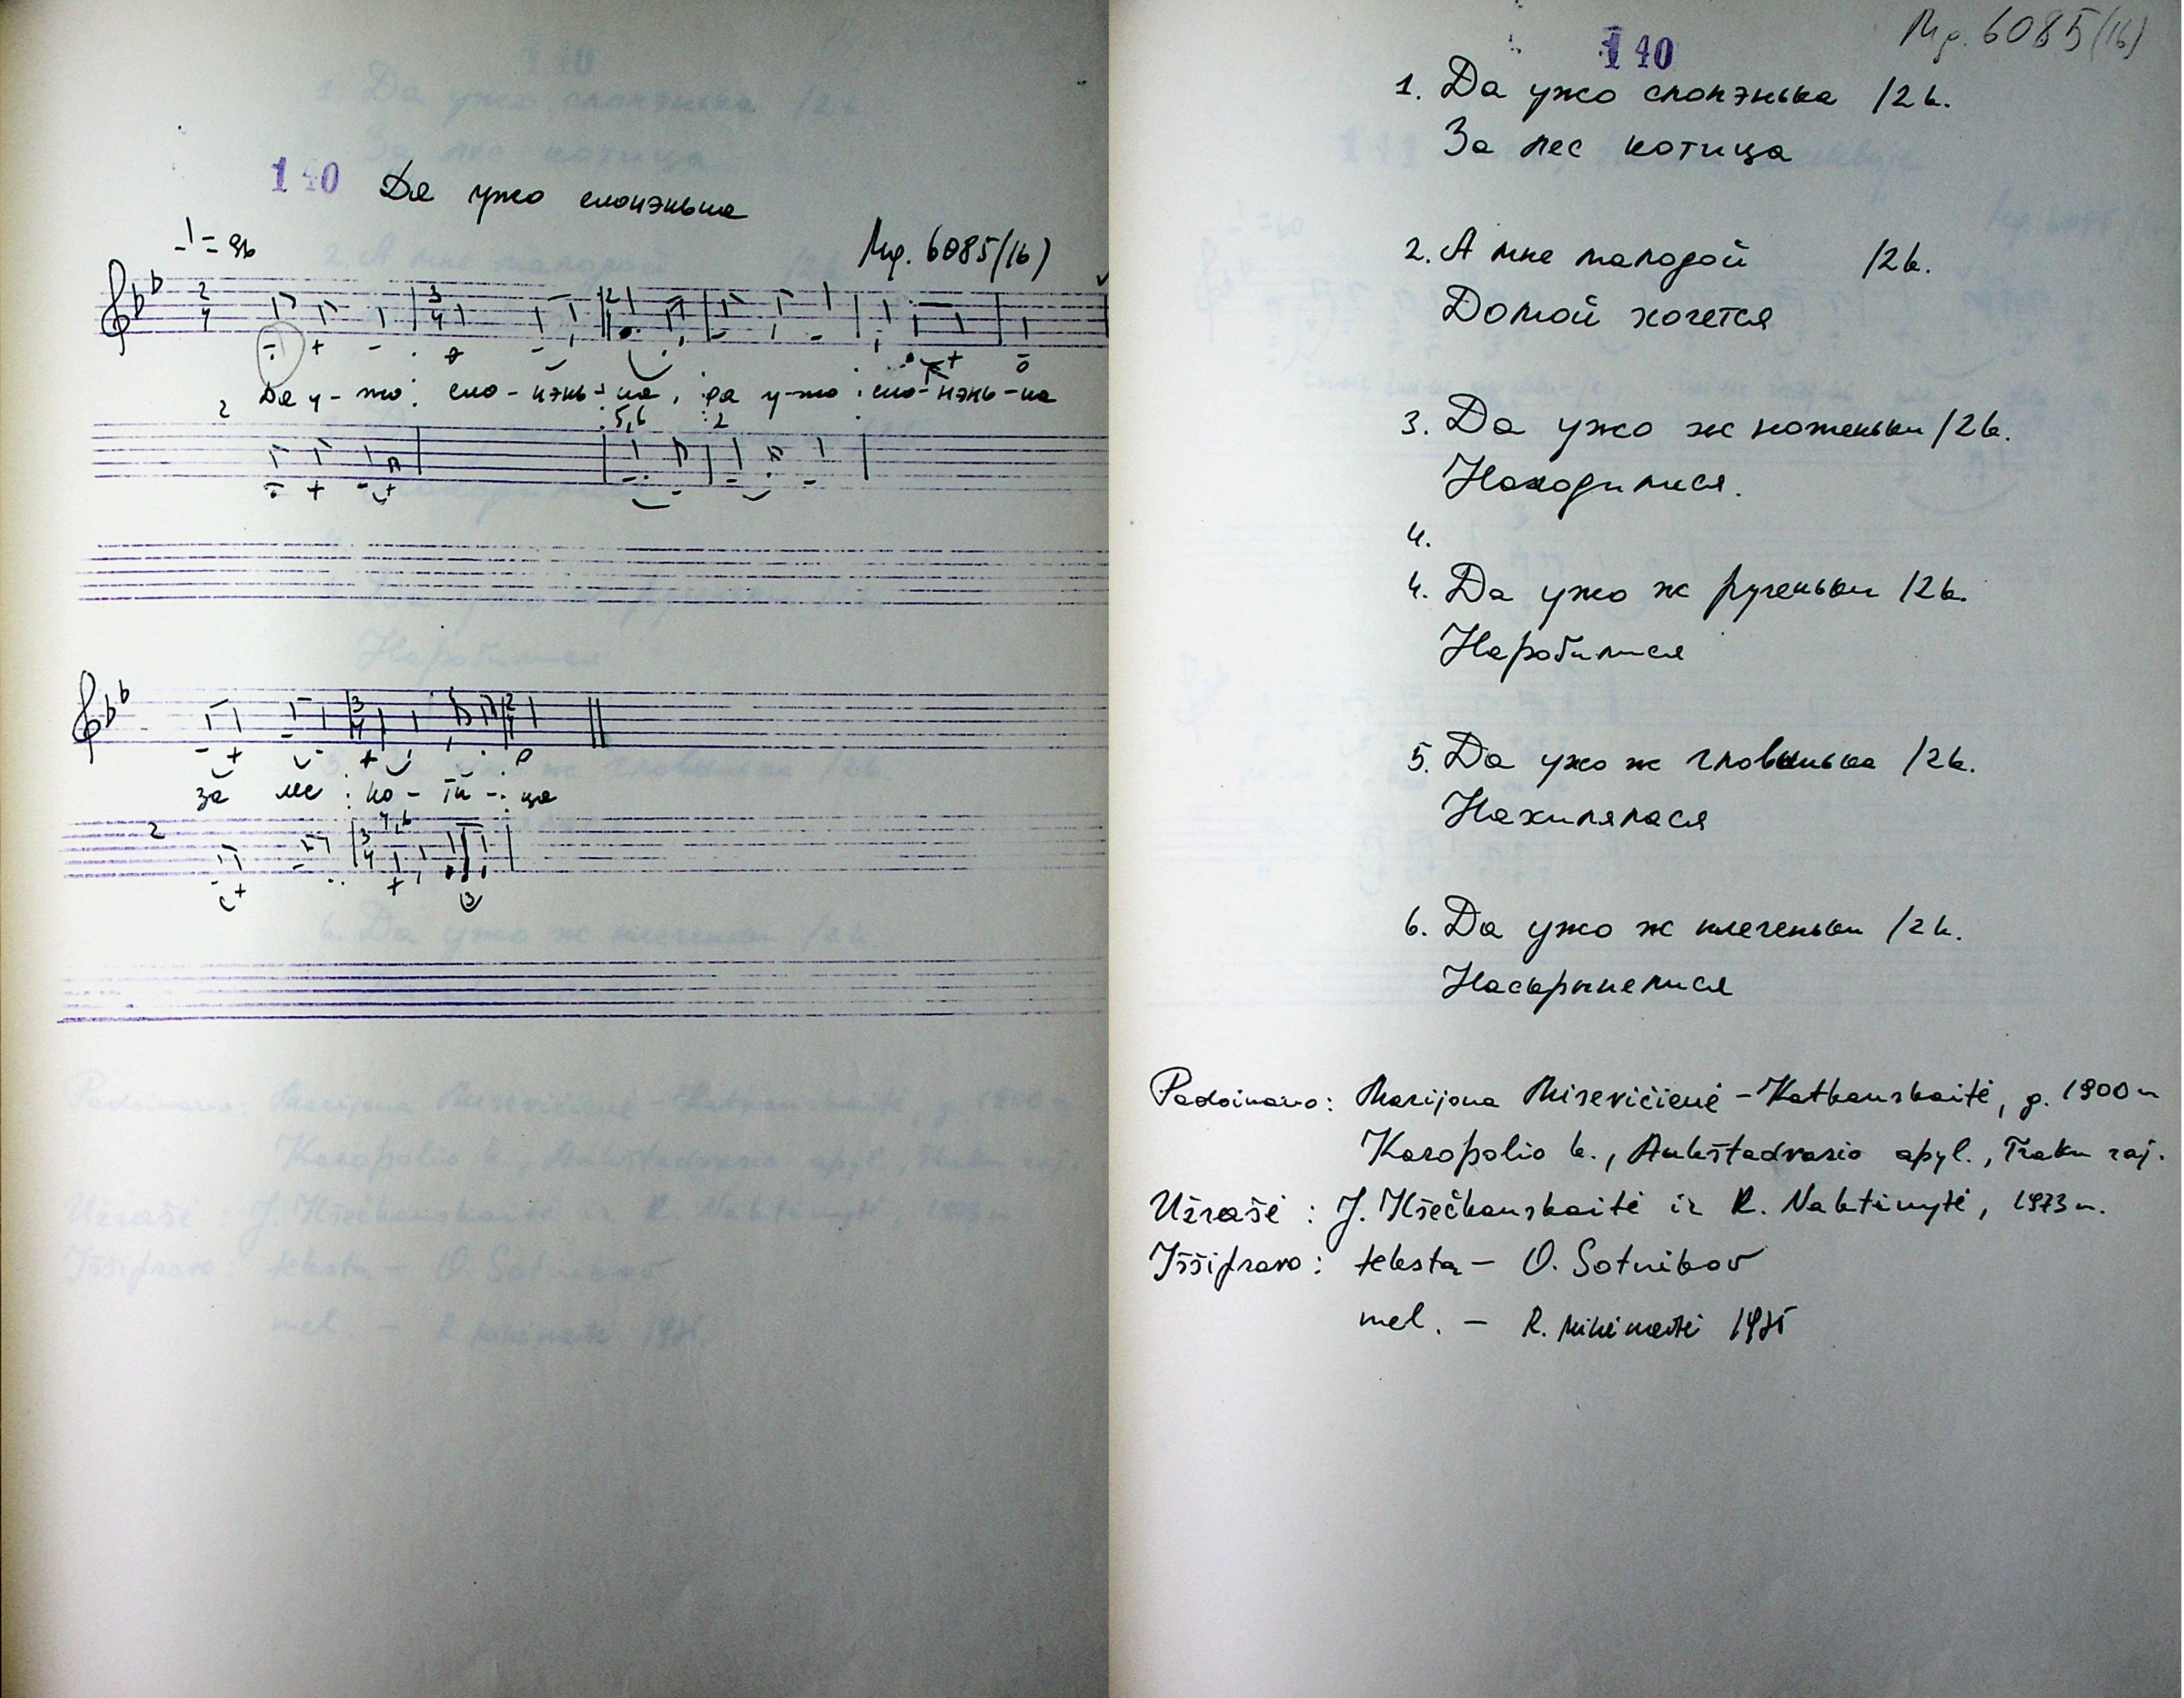 140 Да ужо слонэнька
Mg. 6085(16)
Да у-жо сло-нэнь-ка, да у-жо сло-нэнь-ка
2 5,6 2
за лес ко-ти-ца
2 4,6
140 Mg. 6085(16)
1. Да ужо слонэнька /2k.
За лес котица
2. А мне малодой /2k.
Домой хочется
3. Да ужо ж ноженьки /2k.
Находилися.
4.
4. Да ужо ж рученьки /2k.
Наробилися
5. Да ужо ж /2k.
Нахилялася
6. Да ужо ж плеченьки /2k.
Padainavo: Marijona Misevičienė - g. 1900 m
Karopolio k., Aukštadvario apyl., Trakų raj.
Užrašė: J. ir R. 1973 m.
Iššifravo: tekstą - O. Sotnikov
mel. - R. 1975